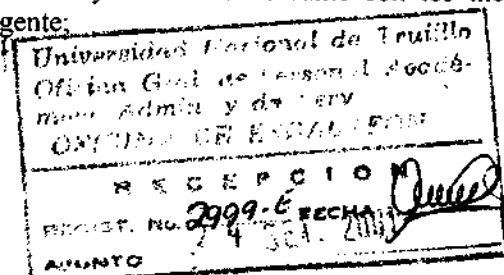 gente;
Universidad Nacional de Trujillo
Oficina Gral de Personal Acadé-
Admin y de Serv
OFICINA DE ESCALAFON
RECEPCION
REGIST. No. 2999-E FECHA
24 SET.
ASUNTO